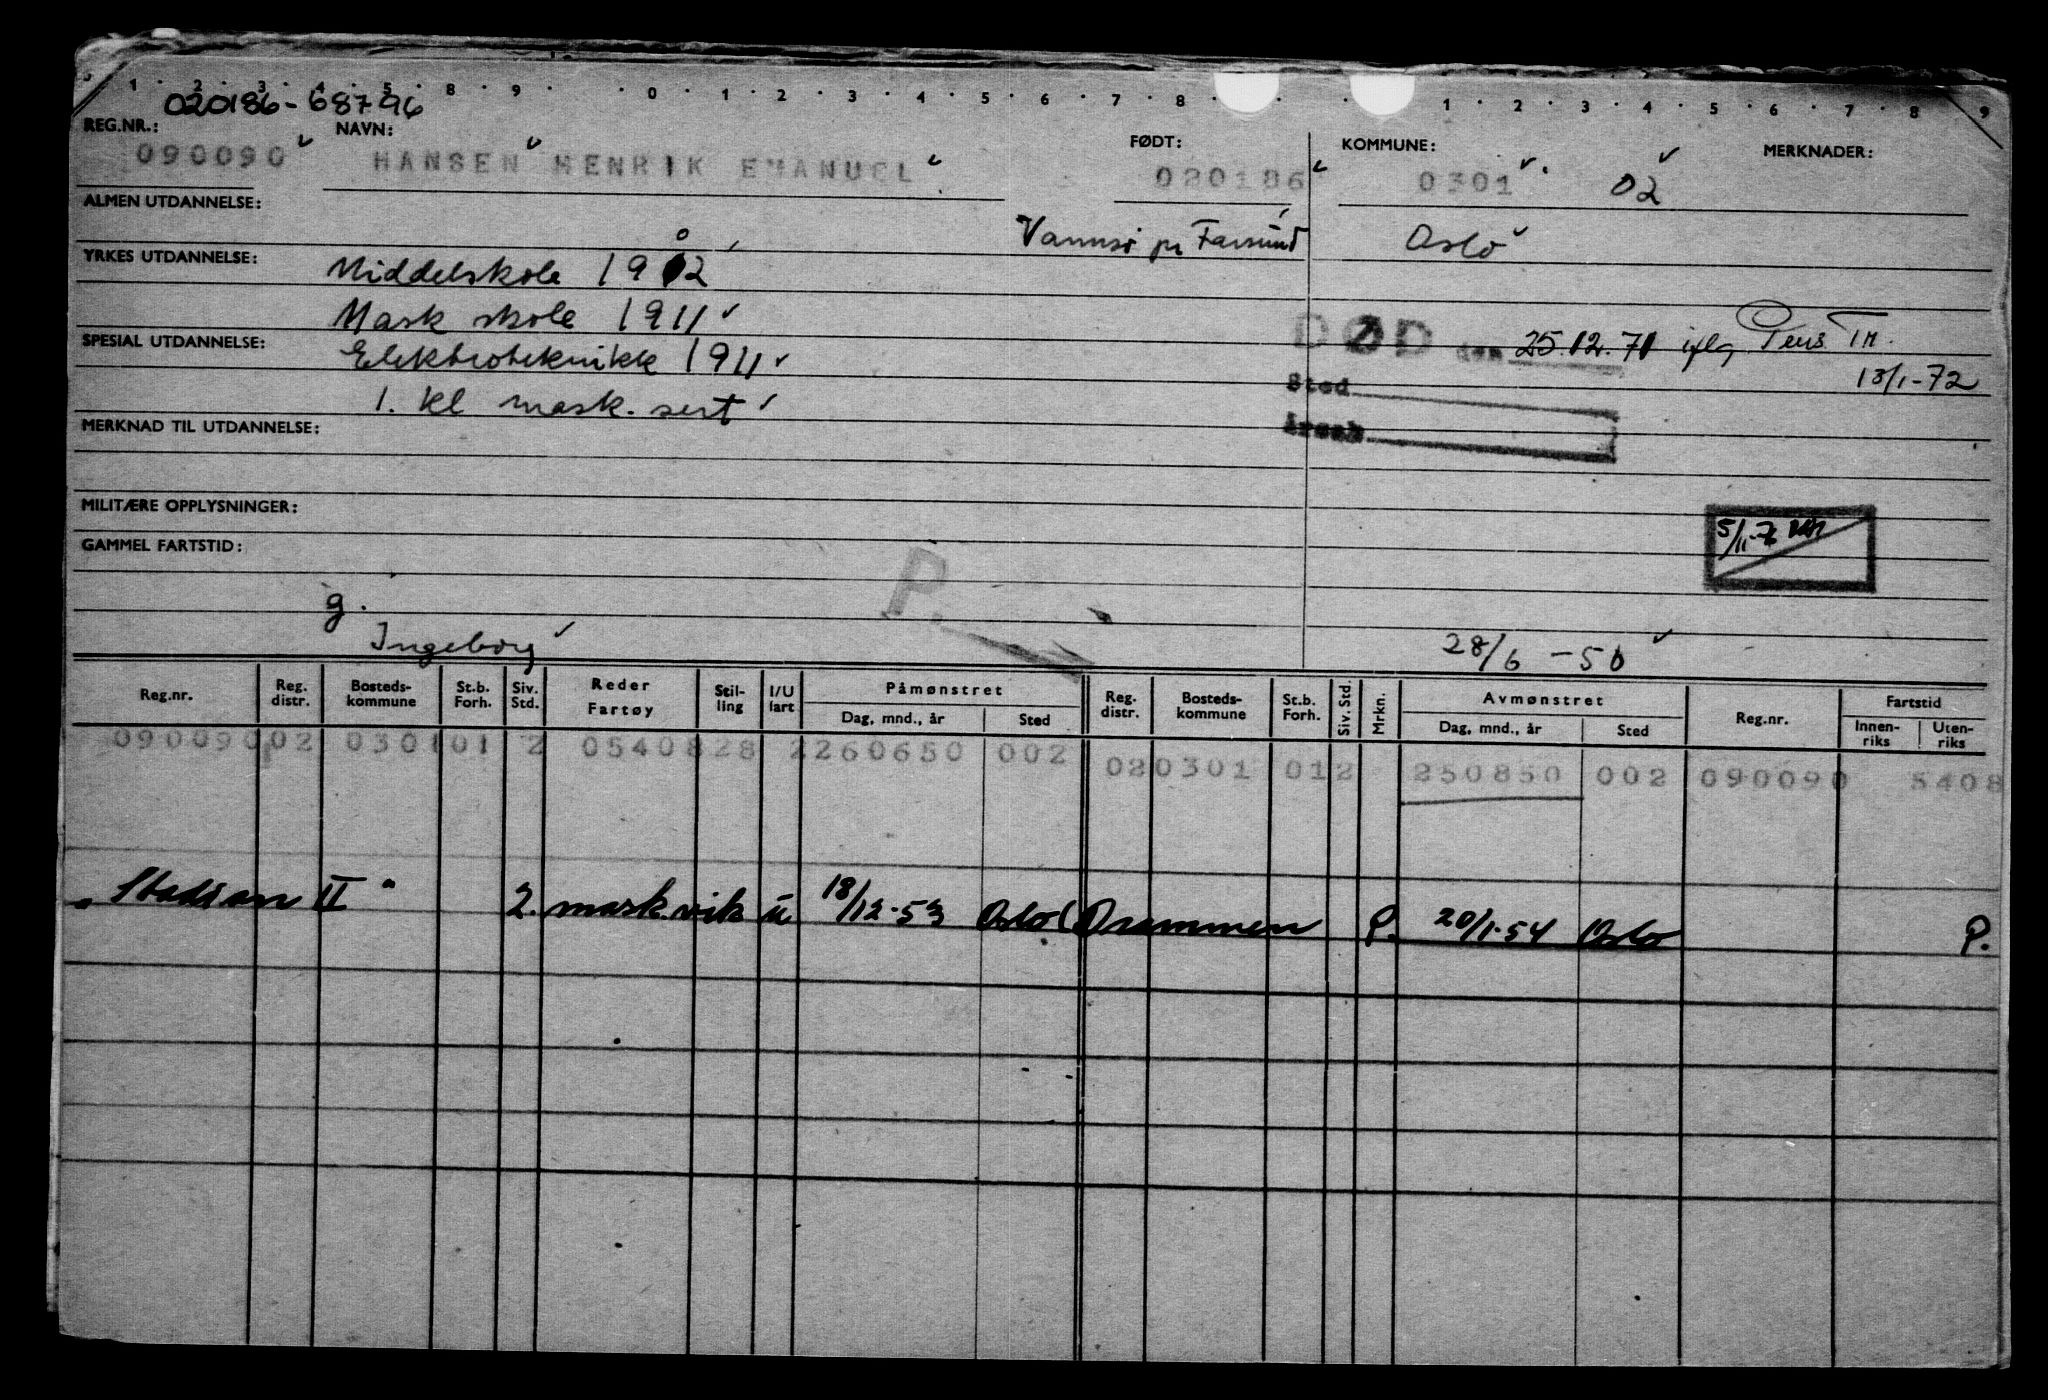 1 · 2 · 3 · 4 · 5 · 8 · 9 · · 0 · 1 · 2 · 3 · 4 · 5 · 6 · 7 · 8 · · · 1 · 2 · 3 · 4 · 5 · 6 · 7 · 8 · 9
020186-68796
REG.NR.: NAVN: FØDT: KOMMUNE: MERKNADER:
090090 HANSEN HENRIK EMANUEL 020186 0301 02
ALMEN UTDANNELSE:
Vannsø pr Farsund Oslo
YRKES UTDANNELSE: Middelskole 1902
Mask skole 1911
DØD den 25.12.71 iflg Pens TH.
SPESIAL UTDANNELSE: Elektroteknikk 1911
13/1-72
1. kl mask. sert Sted
MERKNAD TIL UTDANNELSE: Årsak
MILITÆRE OPPLYSNINGER:
5/11-76
GAMMEL FARTSTID:
P.
g.
Ingeborg 28/6 -50
Reg.nr. Reg. distr. Bosteds-kommune St.b. Forh. Siv. Std. Reder Fartøy Stil-ling I/U fart Påmønstret Dag, mnd., år Sted Reg. distr. Bosteds-kommune St.b. Forh. Siv. Std. Mrkn. Avmønstret Dag, mnd., år Sted Reg.nr. Fartstid Innen-riks Uten-riks
090090 02 0301 01 2 0540828 2 260650 002 02 0301 01 2 250850 002 090090 5408
"Stadion II" 2. mask. vik u 18/12-53 Oslo (Drammen P. 20/1-54 Oslo P.